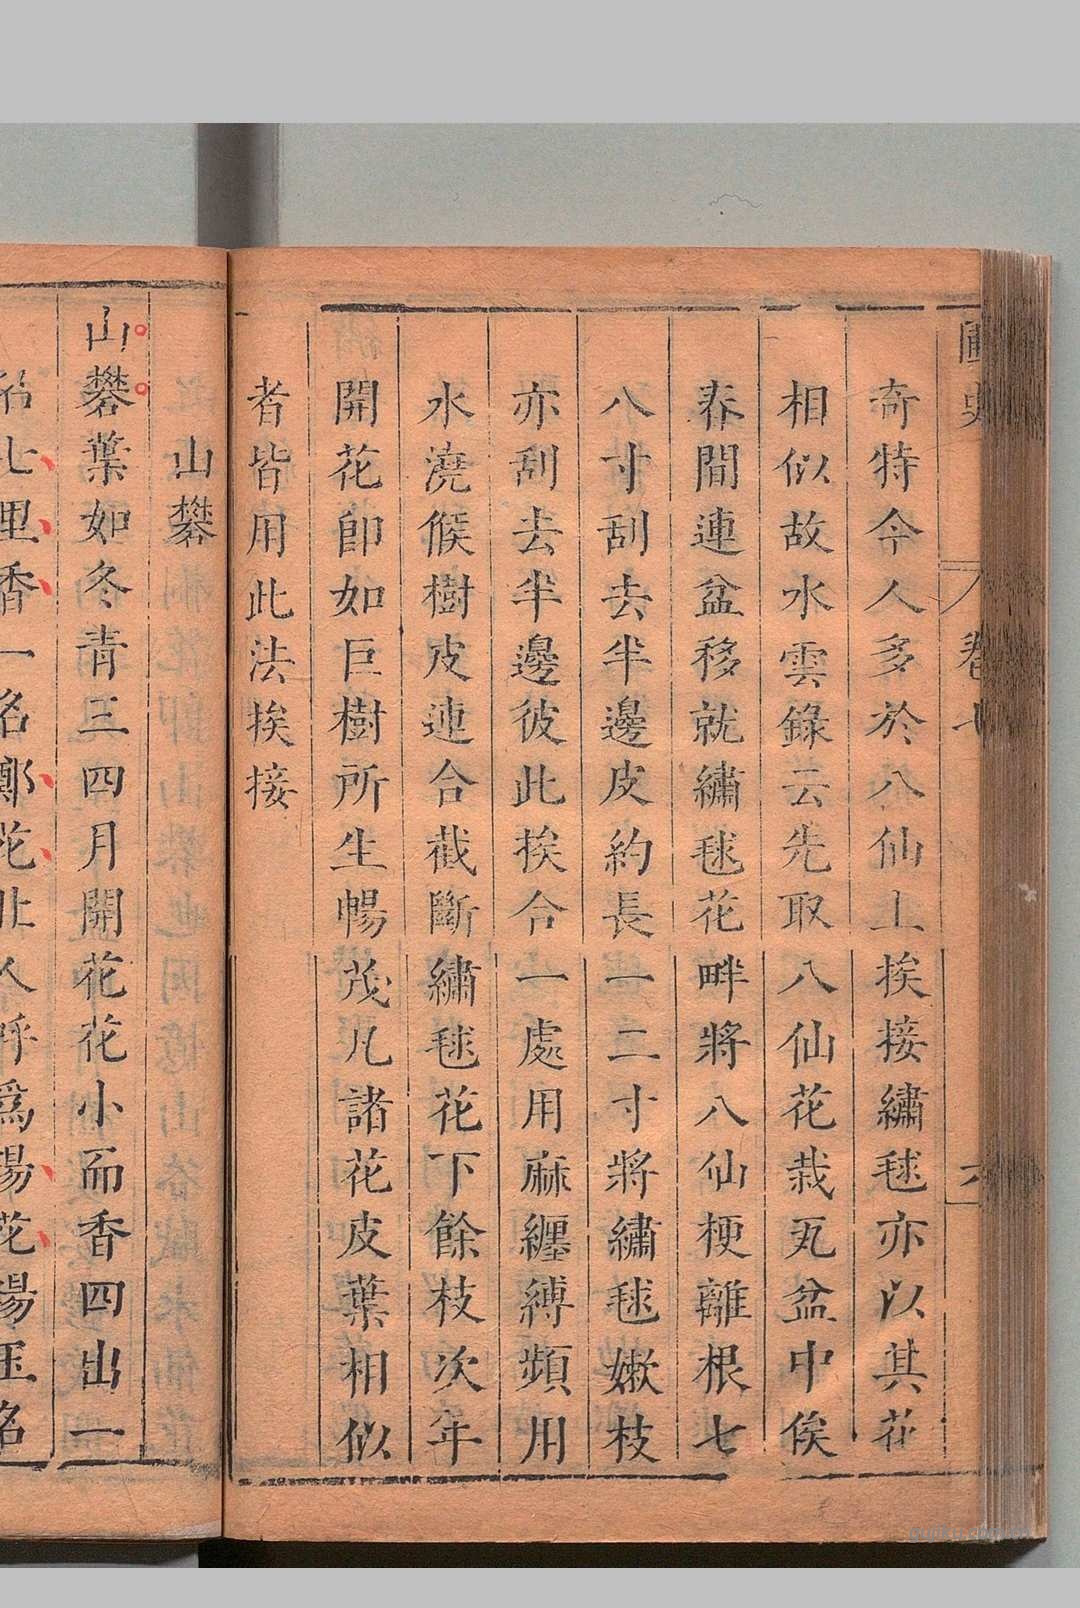 圃史 卷七 六
奇特今人多於八仙上挨接繡毬亦以其花
相似故水雲錄云先取八仙花栽瓦盆中俟
春間連盆移就繡毬花畔將八仙梗離根七
八寸刮去半邊皮約長一二寸將繡毬嫰枝
亦刮去半邊彼此挨合一處用麻纏縛頻用
水澆候樹皮連合截斷繡毬花下餘枝次年
開花即如巨樹所生暢茂凡諸花皮葉相似
者皆用此法挨接
山礬
山礬葉如冬青三四月開花花小而香四出一
名七里香一名鄭花北人呼爲瑒花瑒玉名